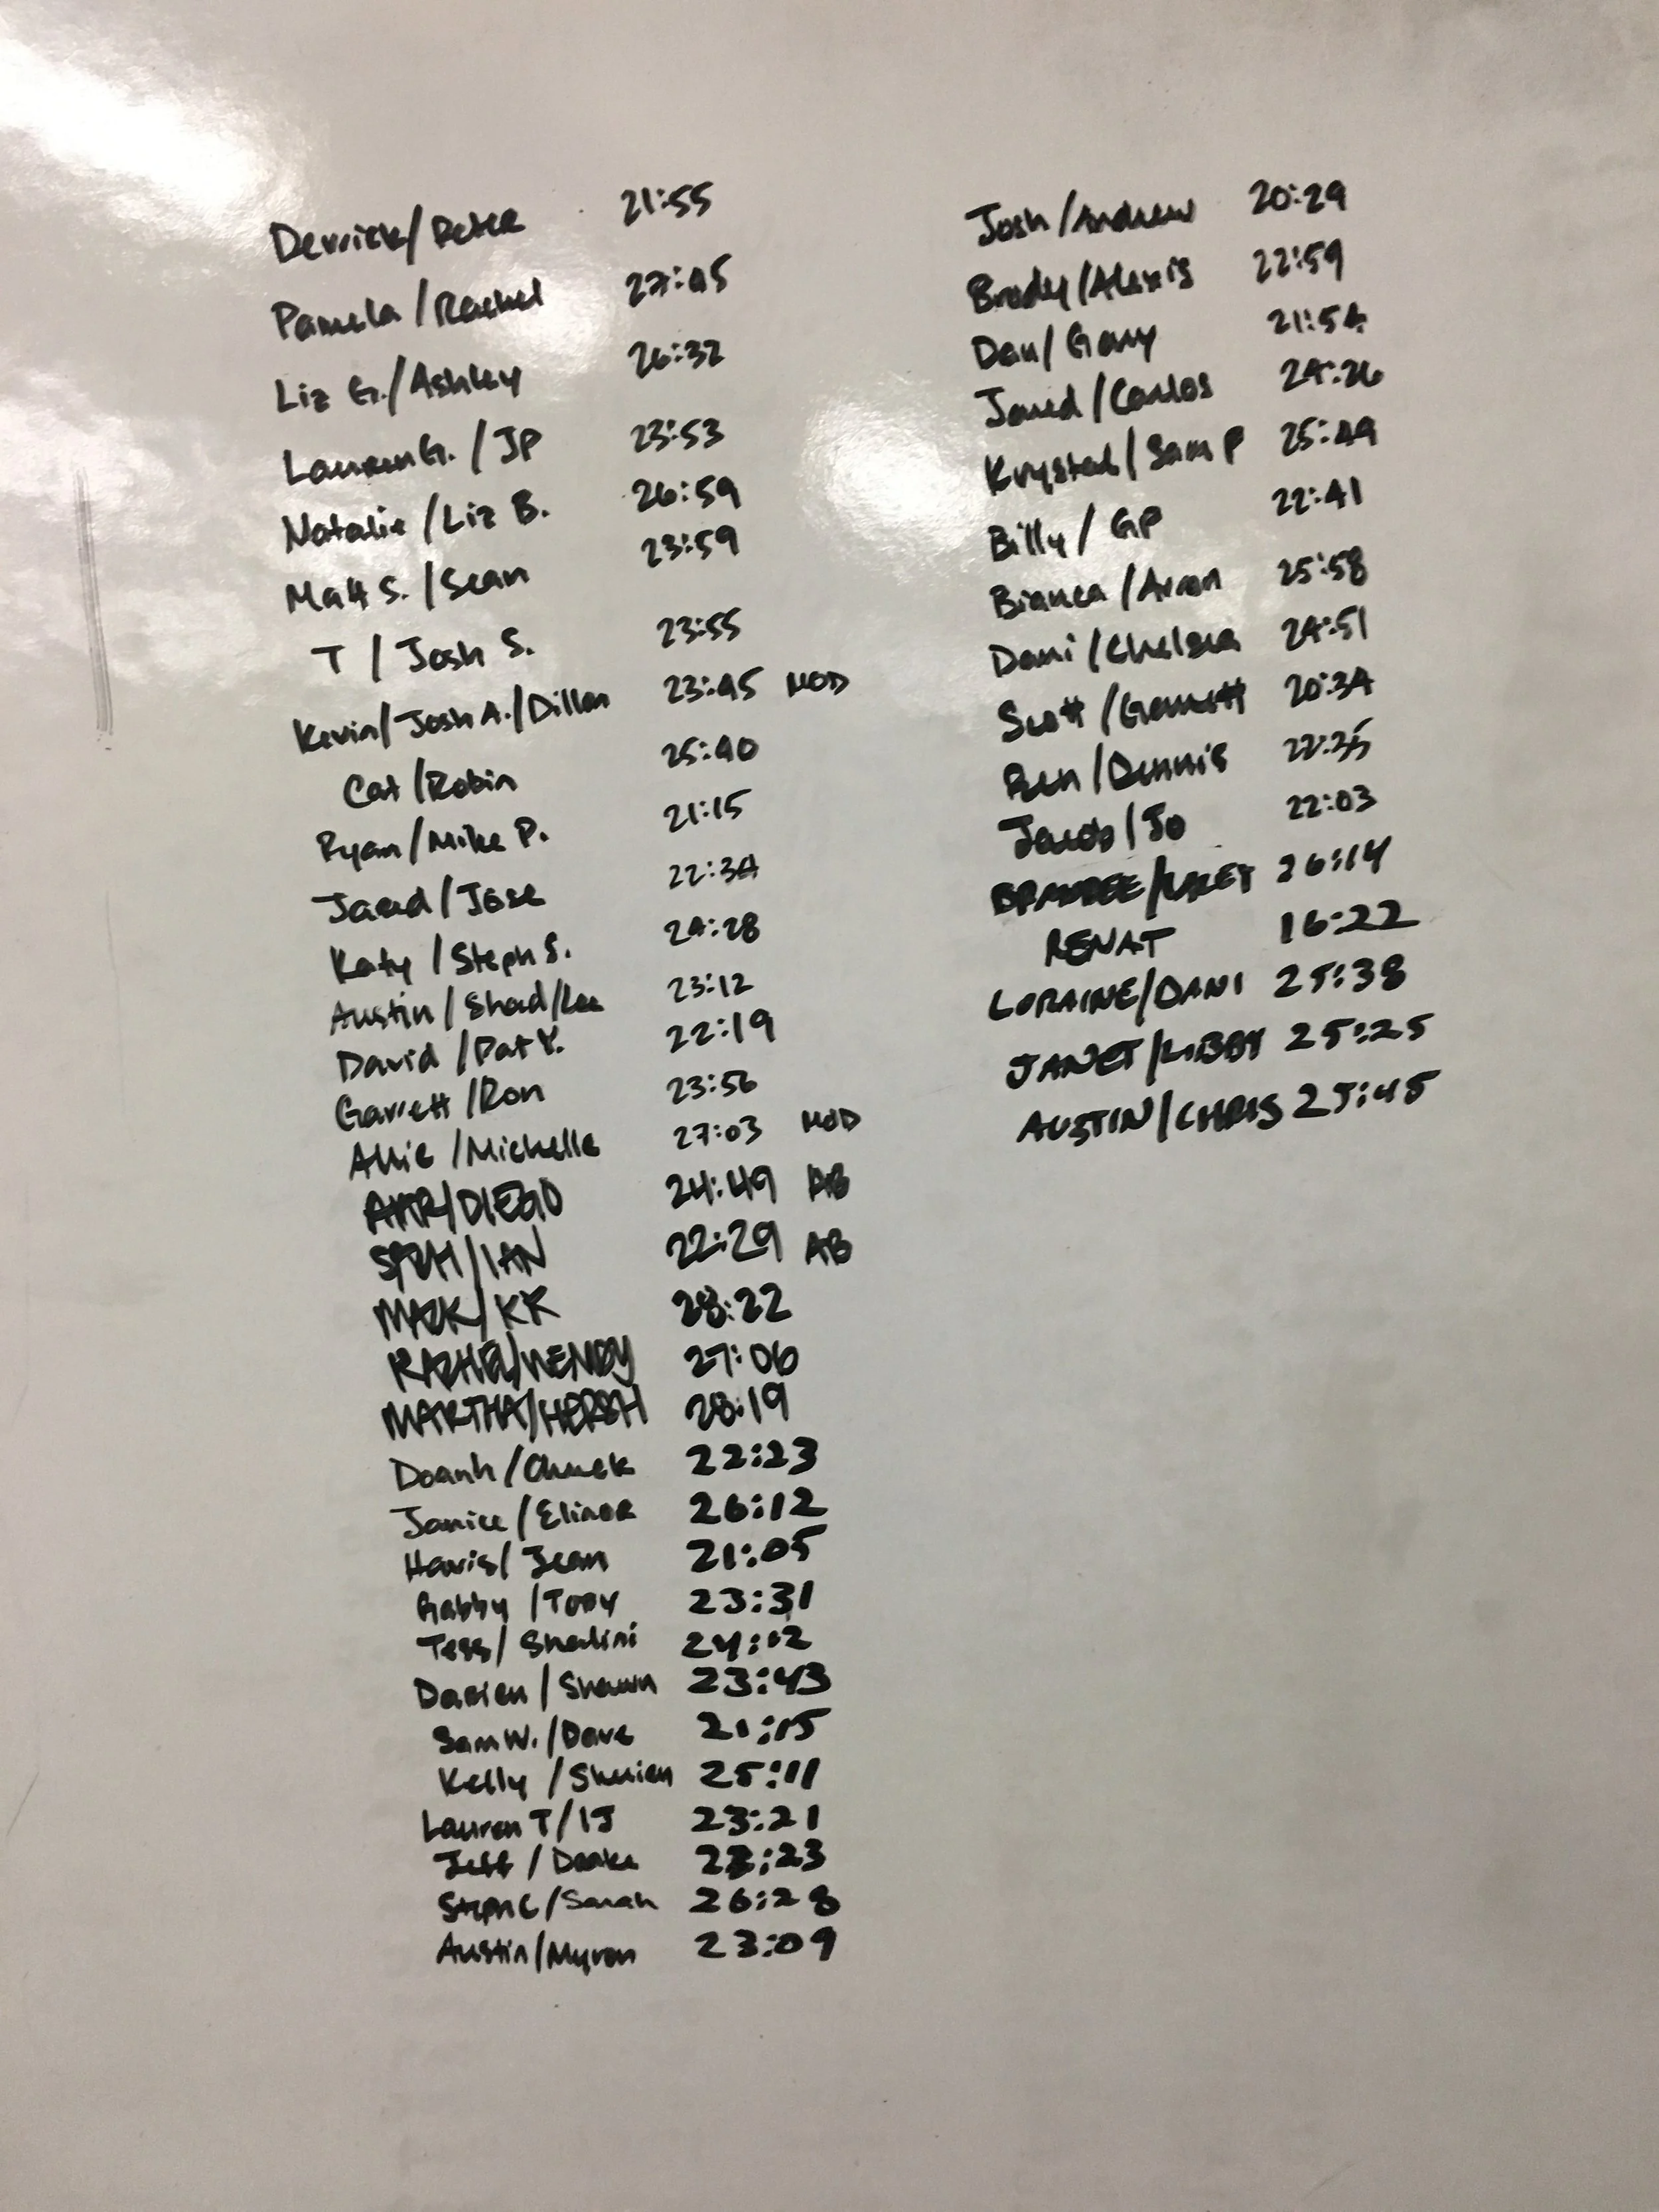 Derrick/Peter 21:55
Pamela/Rachel 27:45
Liz G./Ashley 26:32
Lauren G./JP 23:53
Natalie/Liz B. 26:59
Matt S./Sean 23:59
T/Josh S. 23:55
Kevin/Josh A./Dillon 23:45 MOD
Cat/Robin 25:40
Ryan/Mike P. 21:15
Jared/Jose 22:34
Katy/Steph S. 24:28
Austin/Shad/Lee 23:12
David/Pat Y. 22:19
Garrett/Ron 23:56
Allie/Michelle 27:03 MOD
AMR/DIEGO 24:49 AB
/IAN 22:29 AB
MARK/KK 28:22
RACHEL/WENDY 27:06
MARTHA/HERSH 28:19
Doanh/Chuck 22:23
Janice/Elinor 26:12
Haris/Jean 21:05
Gabby/Tony 23:31
Tess/Shalini 24:12
Darien/Shawn 23:43
Sam W./Dave 21:15
Kelly/ 25:11
Lauren T/IJ 23:21
Jeff/Drake :23
Steph C/Sarah 26:28
Austin/Myron 23:09
Josh/Andrew 20:29
Brody/Alexis 22:59
Dan/Gary 21:54
Jared/Carlos 24:26
Krystal/Sam P 25:49
Billy/GP 22:41
Bianca/Arron 25:58
Dani/Chelsea 24:51
Scott/Garrett 20:34
Ben/Dennis 22:35
Jacob/Jo 22:03
26:14
RENAT 16:22
LORAINE/DANI 25:38
JANET/LIBBY 25:25
AUSTIN/CHRIS 25:45